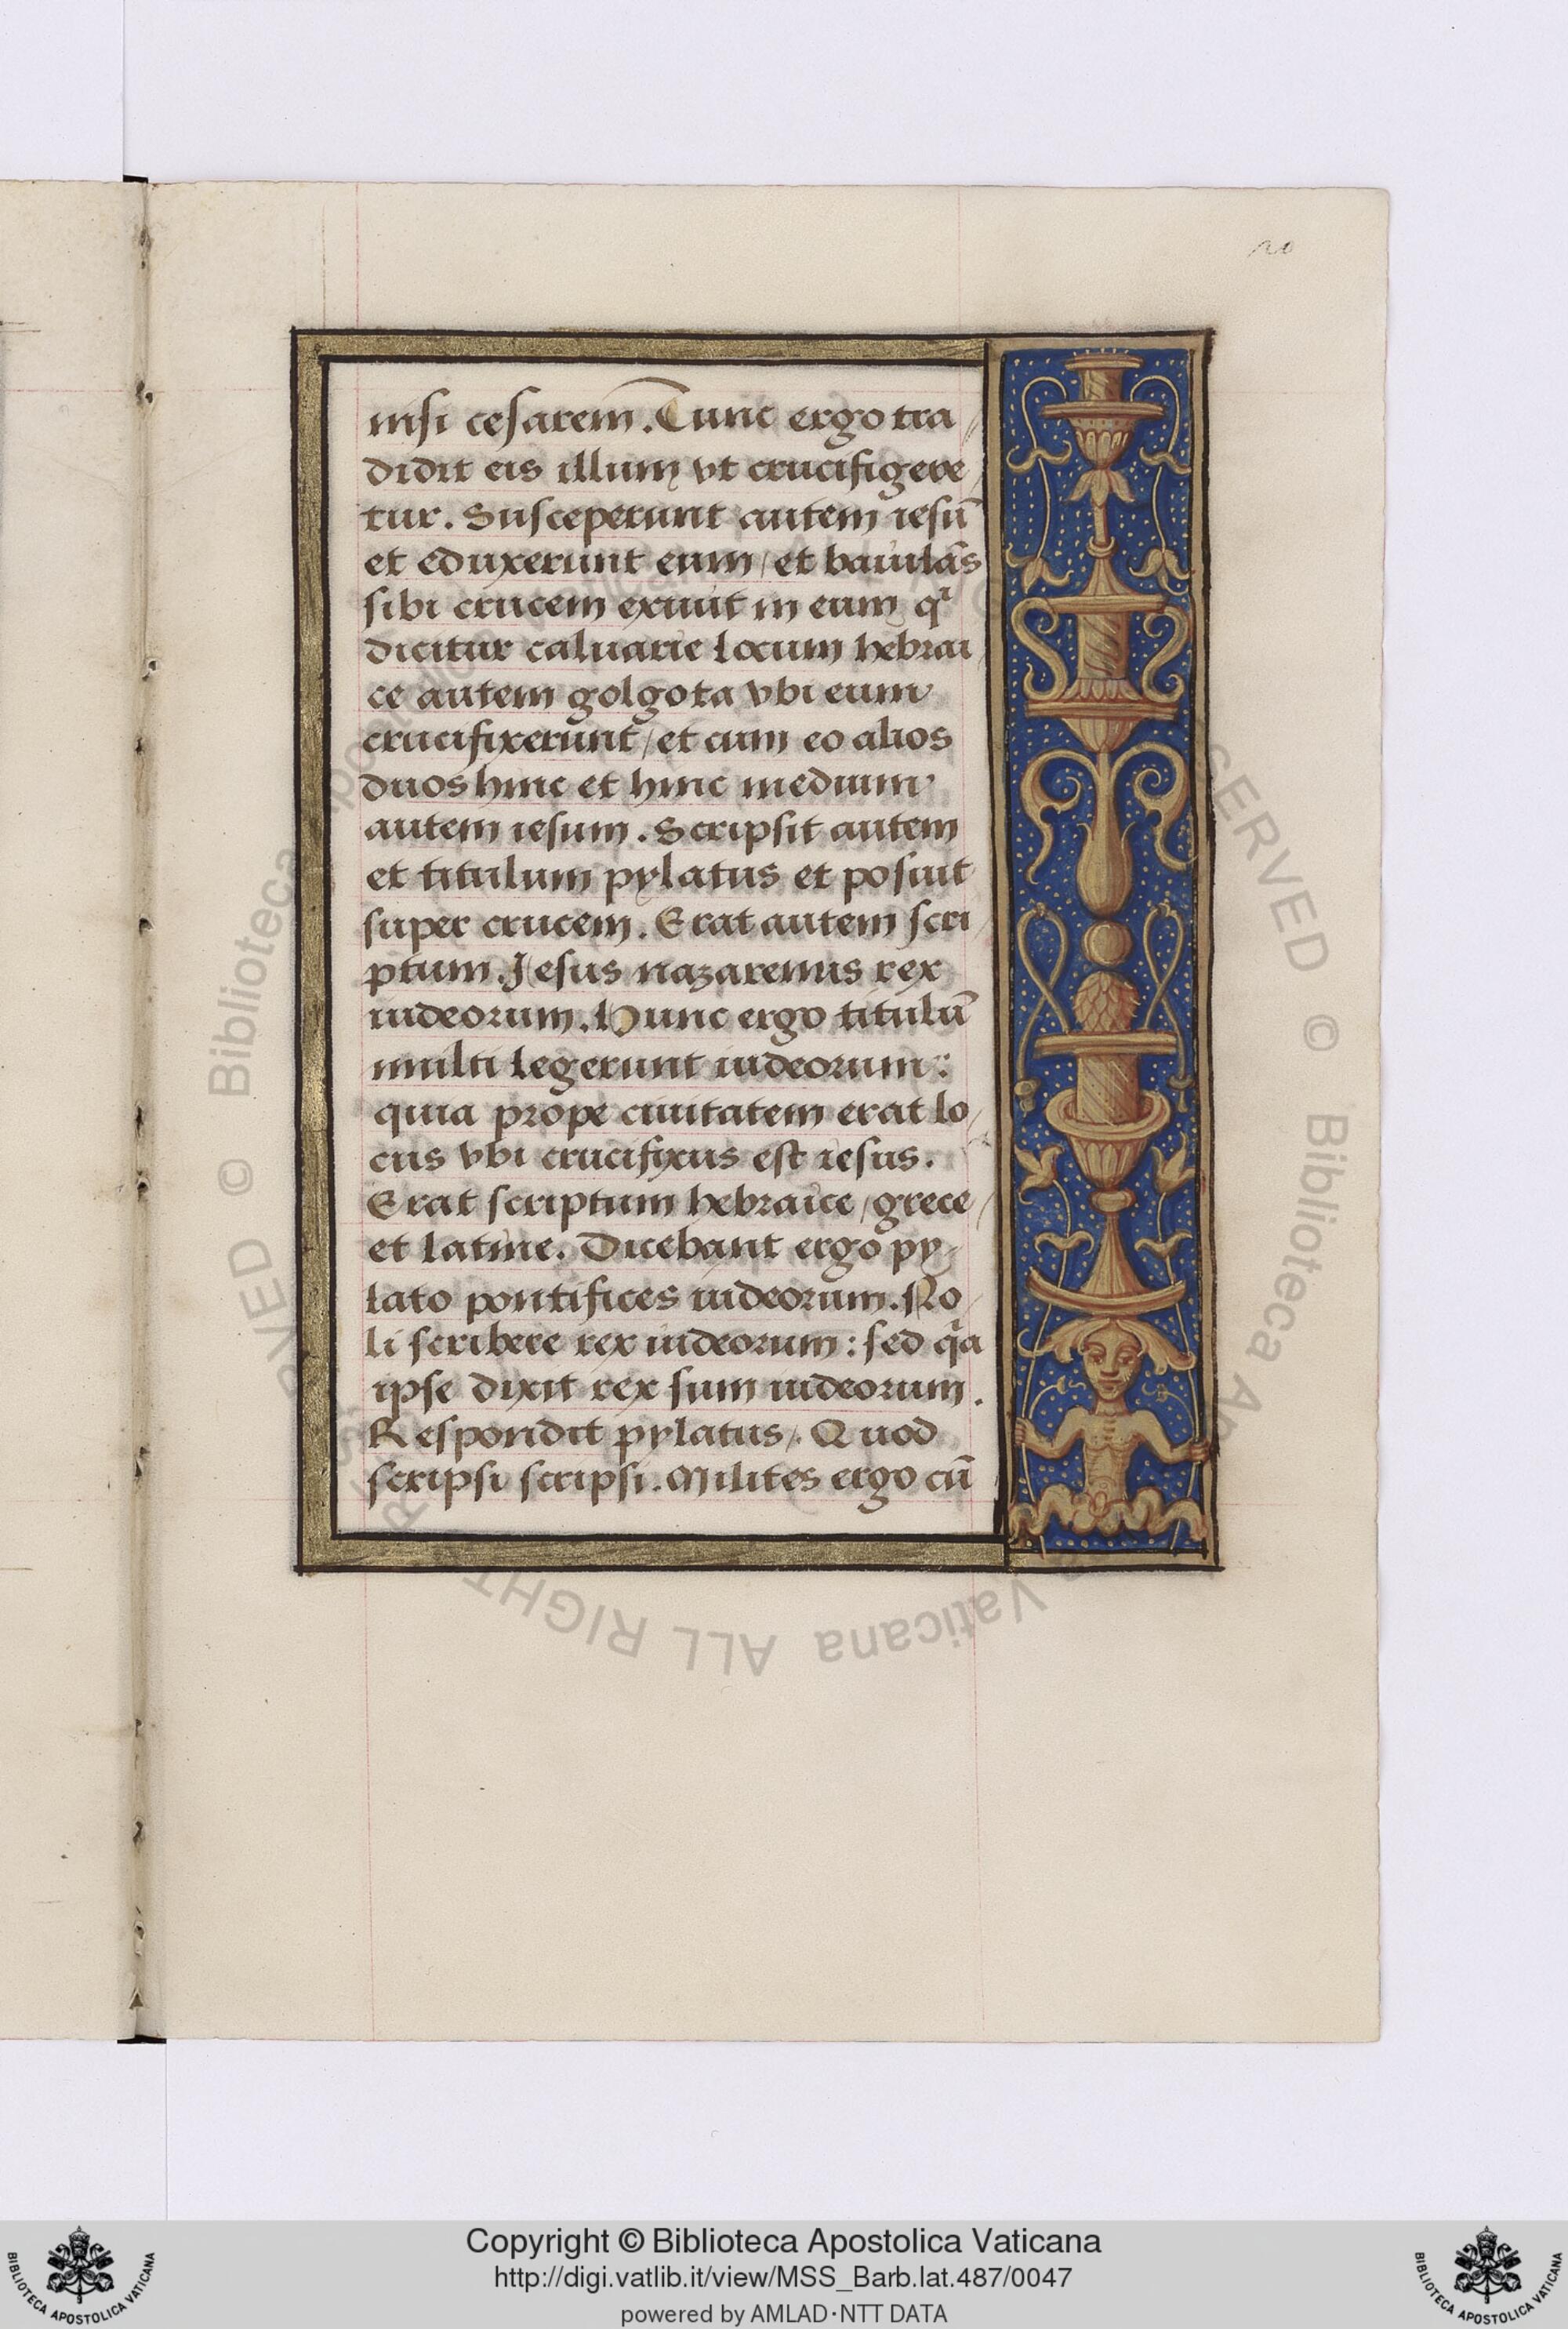 20
nisi cesarem. Tunc ergo tra/
didit eis illum vt crucifigere/
tur. Susceperunt autem iesū
et eduxerunt eum/et baiulās
sibi crucem exiuit in eum qͥ
dicitur caluarie locum hebrai/
ce autem golgota vbi eum
crucifixerunt/et cum eo alios
duos hinc et hinc medium
autem iesum. Scripsit autem
et titulum pylatus et posuit
super crucem. Erat autem scri/
ptum. Jesus nazarenus rex
iudeorum. Hunc ergo titulū
multi legerunt iudeorum:
quia prope ciuitatem erat lo/
cus vbi crucifixus est iesus.
Erat scriptum hebraice/grece/
et latine. Dicebant ergo py/
lato pontifices iudeorum. No/
li scribere rex iudeorum: sed qͣa
ipse dixit rex sum iudeorum.
Respondit pylatus/. Quod
scripsi scripsi. Milites ergo cū
© Biblioteca Apostolica Vaticana ALL RIGHTS RESERVED
Copyright © Biblioteca Apostolica Vaticana
http://digi.vatlib.it/view/MSS_Barb.lat.487/0047
powered by AMLAD·NTT DATA
BIBLIOTECA APOSTOLICA VATICANA
BIBLIOTECA APOSTOLICA VATICANA